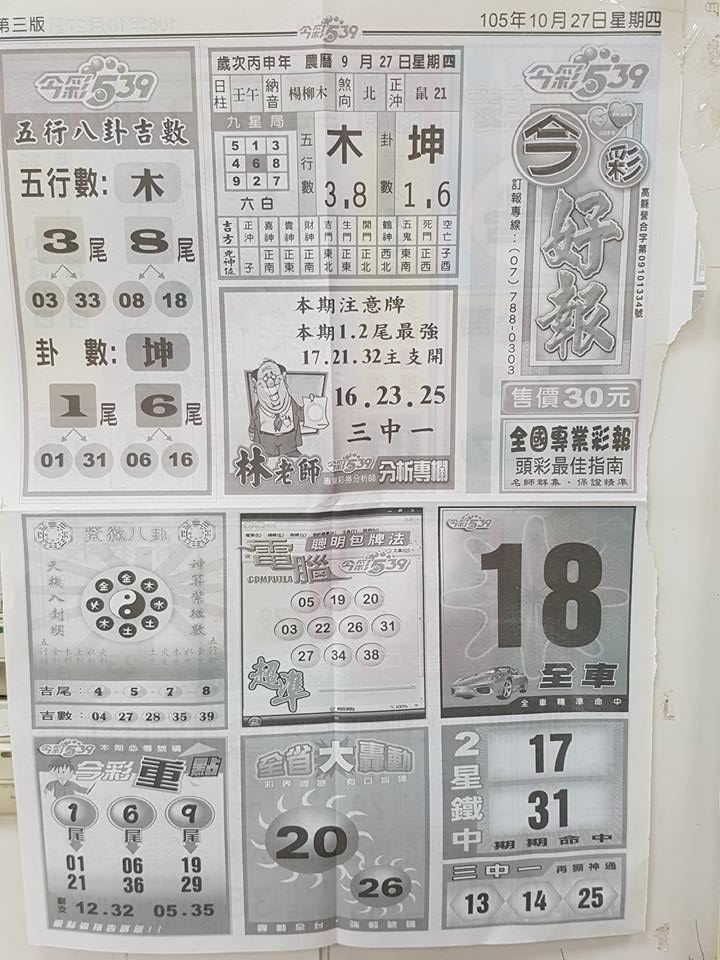 第三版
今彩539
105年10月27日星期四
今彩539
五行八卦吉數
五行數: 木
3尾 8尾
03 33 08 18
卦數: 坤
1尾 6尾
01 31 06 16
歲次丙申年 農曆9月27日星期四
日柱 壬午 納音 楊柳木 煞向 北 正沖 鼠21
九星局
5 1 3
4 6 8
9 2 7
六白
五行數 木 3.8
卦數 坤 1.6
吉方 正沖 喜神 貴神 財神 吉門 生門 開門 鶴神 五鬼 死門 空亡
子 正南 正東 正南 東北 正北 西北 正北 東南 正西 子酉
本期注意牌
本期1.2尾最強
17.21.32主支開
16.23.25
三中一
林老師
今彩539
專業彩券分析師
分析專欄
今彩539
今彩
好報
訂報專線:(07)788-0303
高縣營合字第09101334號
售價30元
全國專業彩報
頭彩最佳指南
名師群集·保證精準
紫微八卦
金 金 木 水 土 土 木 火
吉尾: 4 5 7 8
吉數: 04 27 28 35 39
電腦
COMPUTER
聰明包牌法
今彩539
05 19 20
03 22 26 31
27 34 38
超準
今彩539
18
全車
全車精準命中
今彩539
本期必看號碼
今彩重點
1尾 6尾 9尾
01 06 19
21 36 29
副支 12.32 05.35
全省大轟動
20
26
2星鐵中
17
31
期期命中
三中一 再顯神通
13 14 25